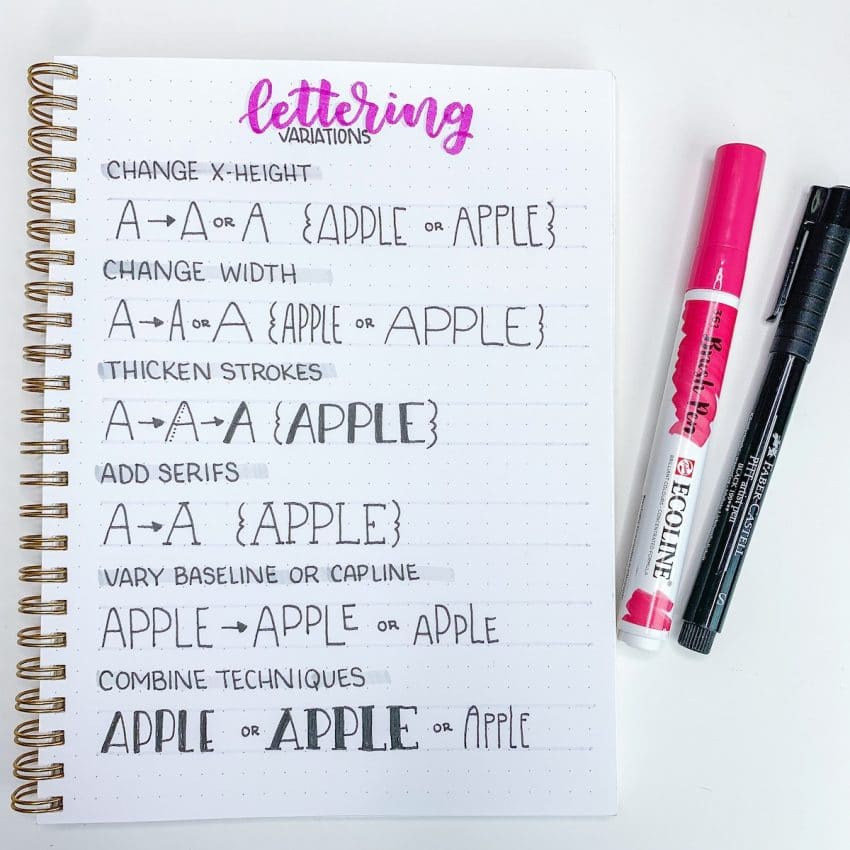 lettering
VARIATIONS
CHANGE X-HEIGHT
A → A OR A {APPLE OR APPLE}
CHANGE WIDTH
A → A OR A {APPLE OR APPLE}
THICKEN STROKES
A → A → A {APPLE}
ADD SERIFS
A → A {APPLE}
VARY BASELINE OR CAPLINE
APPLE → APPLE OR APPLE
COMBINE TECHNIQUES
APPLE OR APPLE OR APPLE
361 Brush Pen
ECOLINE
BRILLIANT COLOURS · CONCENTRATED FORMULA
FABER-CASTELL
PITT artist pen
BLACK 199
S